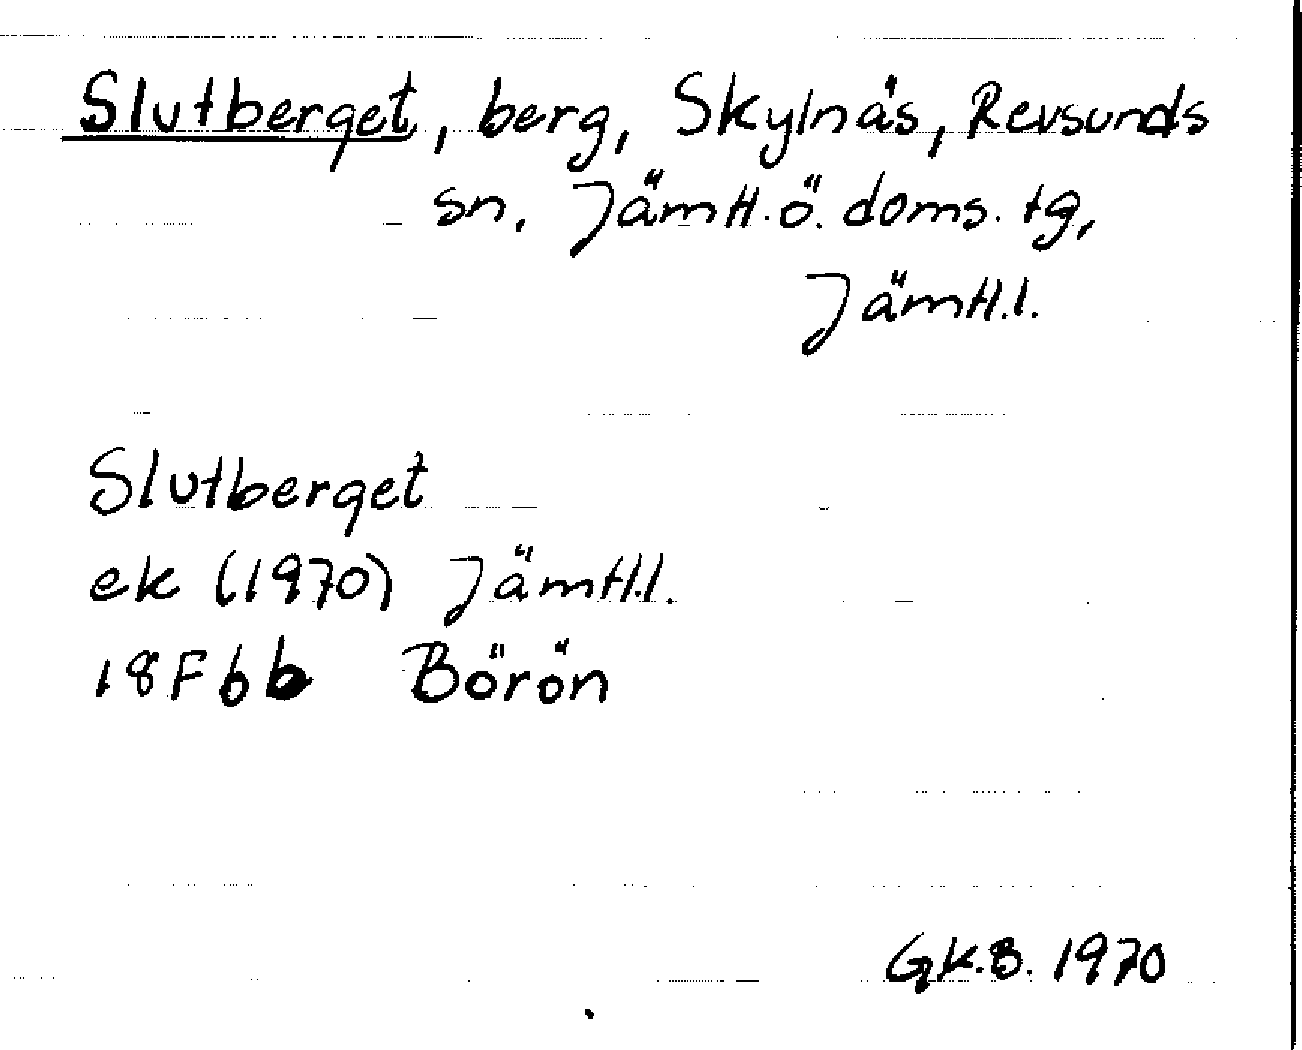 Slutberget, berg, Skylnäs, Revsunds
sn, Jämtl. ö. doms. tg,
Jämtl.l.
Slutberget
ek (1970) Jämtl.l.
18F6b Börön
GK.B. 1970